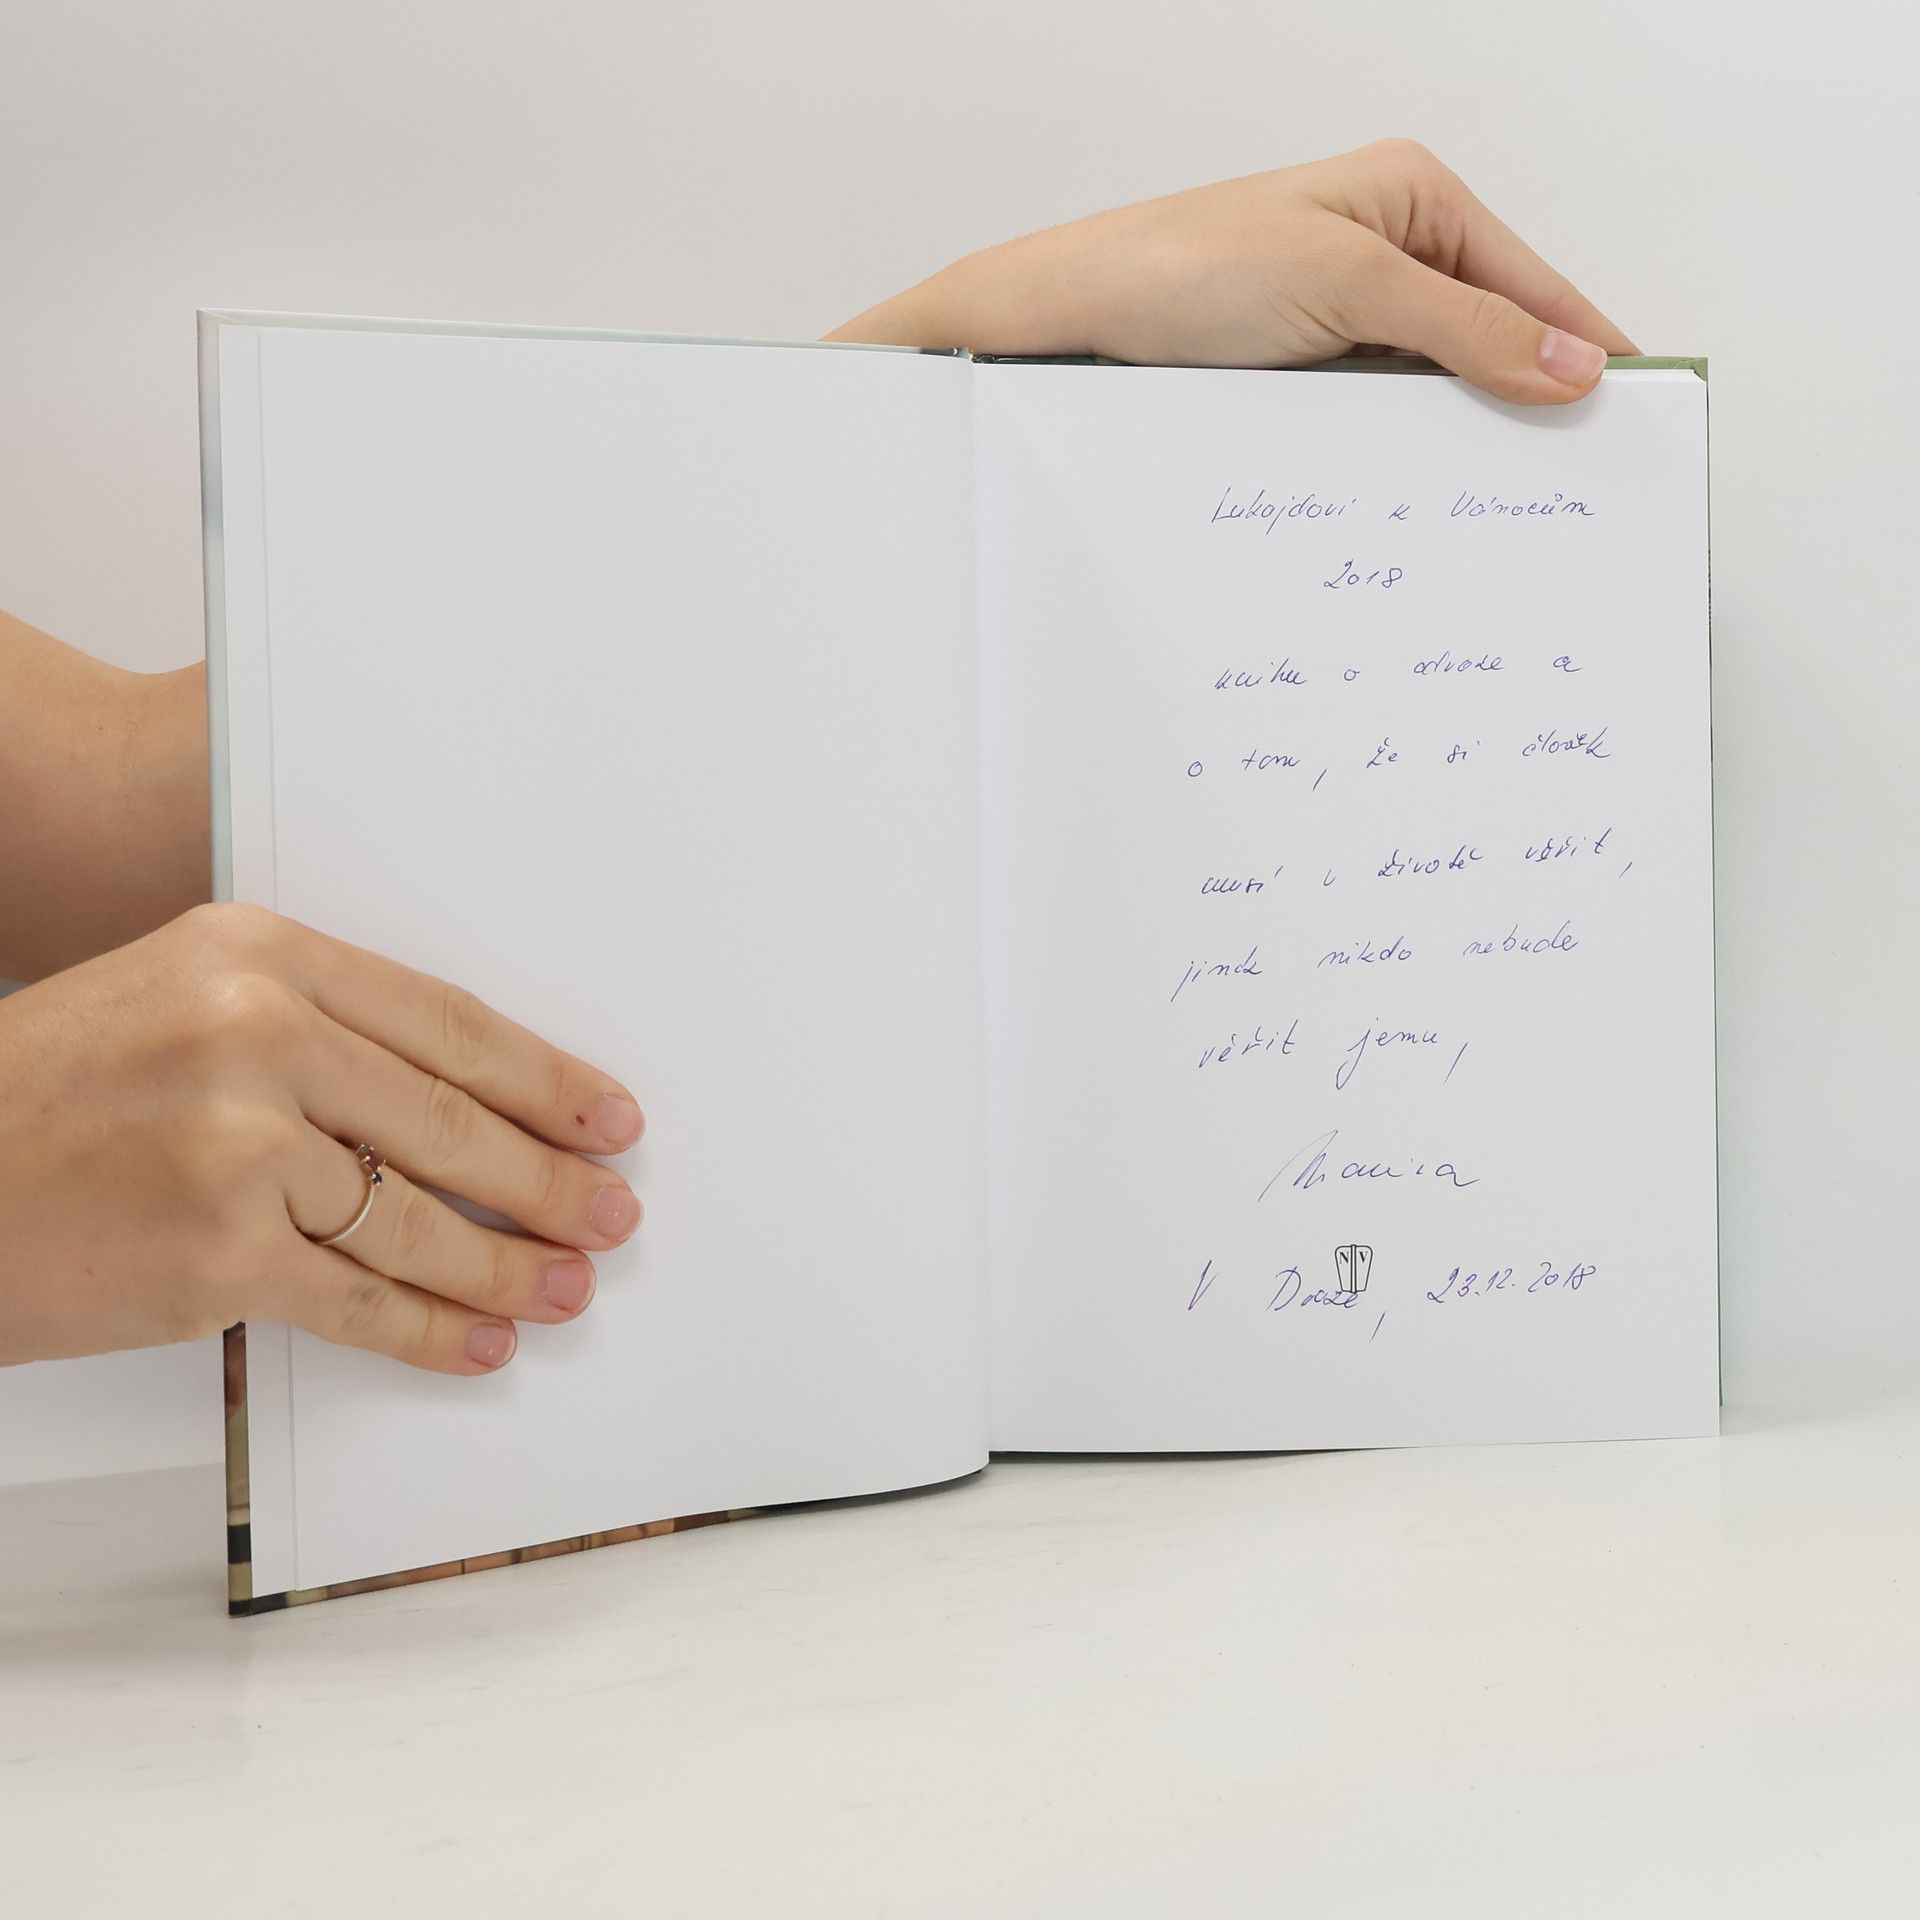 Lukajdovi k Vánocům
2018
knihu o odvaze a
o tom, že si člověk
musí v životě věřit,
jinak nikdo nebude
věřit jemu,
N V
V 23.12.2018